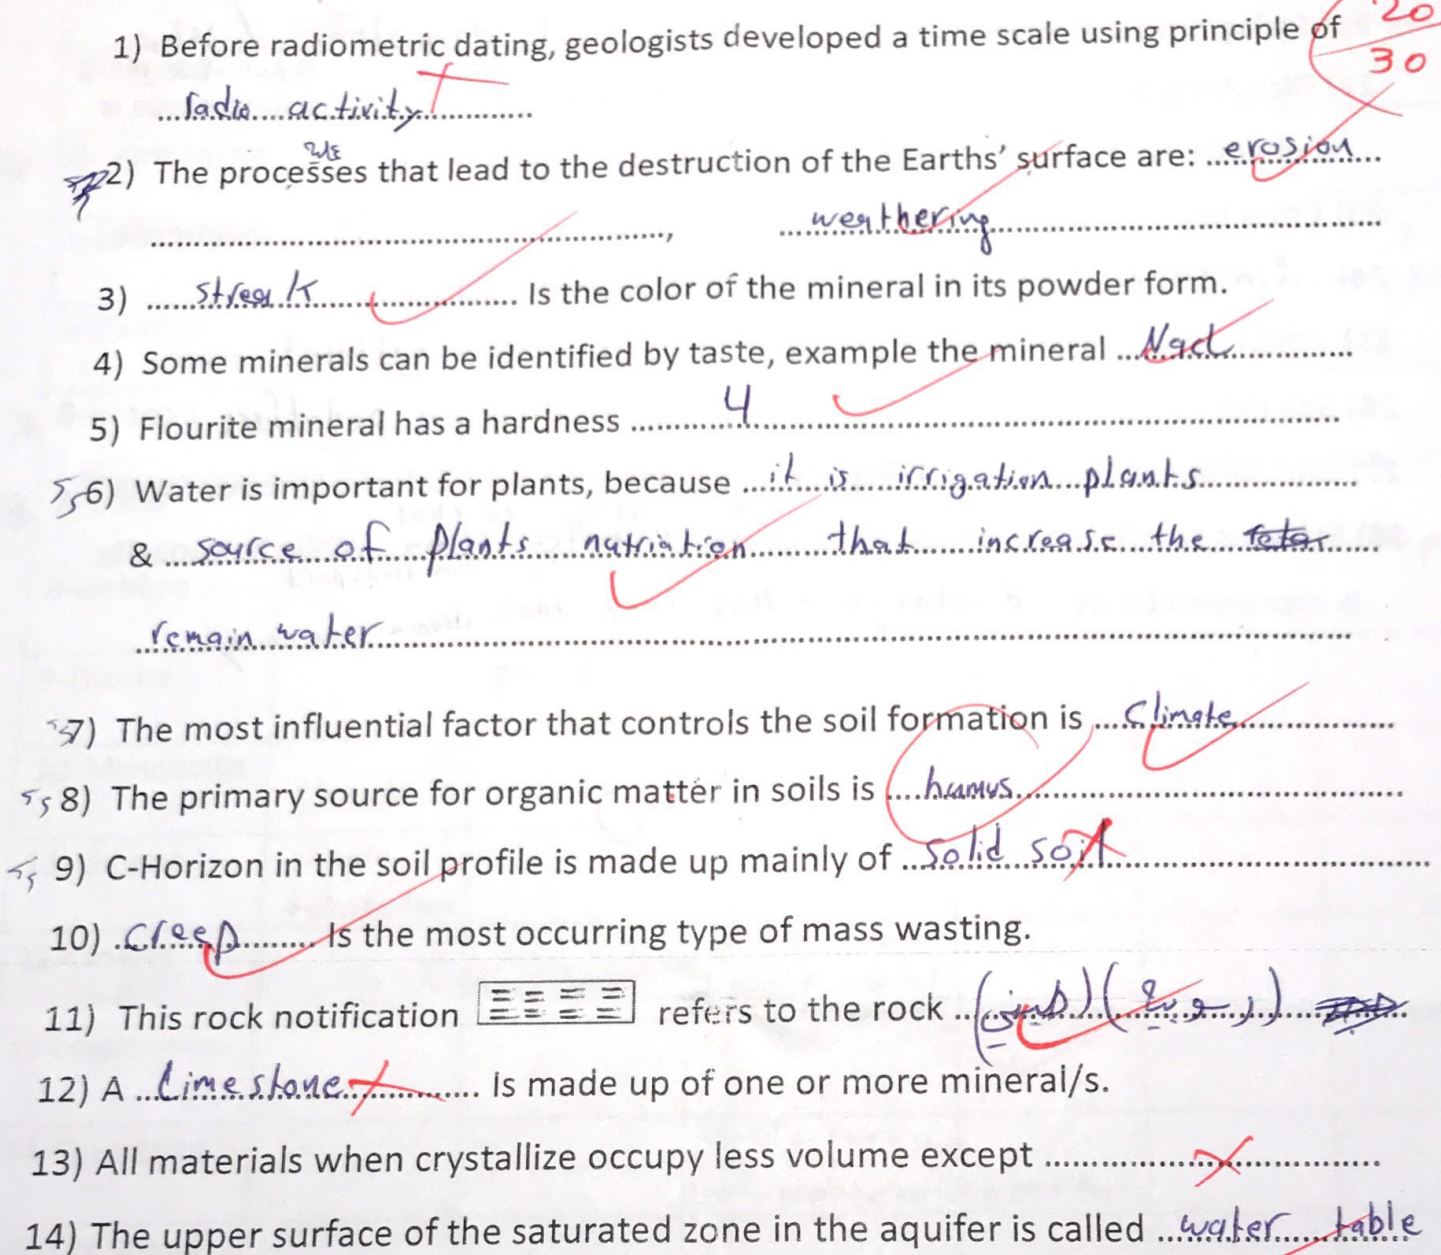 20
30
1) Before radiometric dating, geologists developed a time scale using principle of
radio activity
2) The processes that lead to the destruction of the Earths' surface are: erosion
, weathering
3) streak Is the color of the mineral in its powder form.
4) Some minerals can be identified by taste, example the mineral Nacl
5) Flourite mineral has a hardness 4
6) Water is important for plants, because it is irrigation plants
& source of plants nutriation that increase the
remain water
7) The most influential factor that controls the soil formation is Climate
8) The primary source for organic matter in soils is humus
9) C-Horizon in the soil profile is made up mainly of solid soil
10) creep Is the most occurring type of mass wasting.
11) This rock notification refers to the rock
12) A Limestone Is made up of one or more mineral/s.
13) All materials when crystallize occupy less volume except
14) The upper surface of the saturated zone in the aquifer is called water table